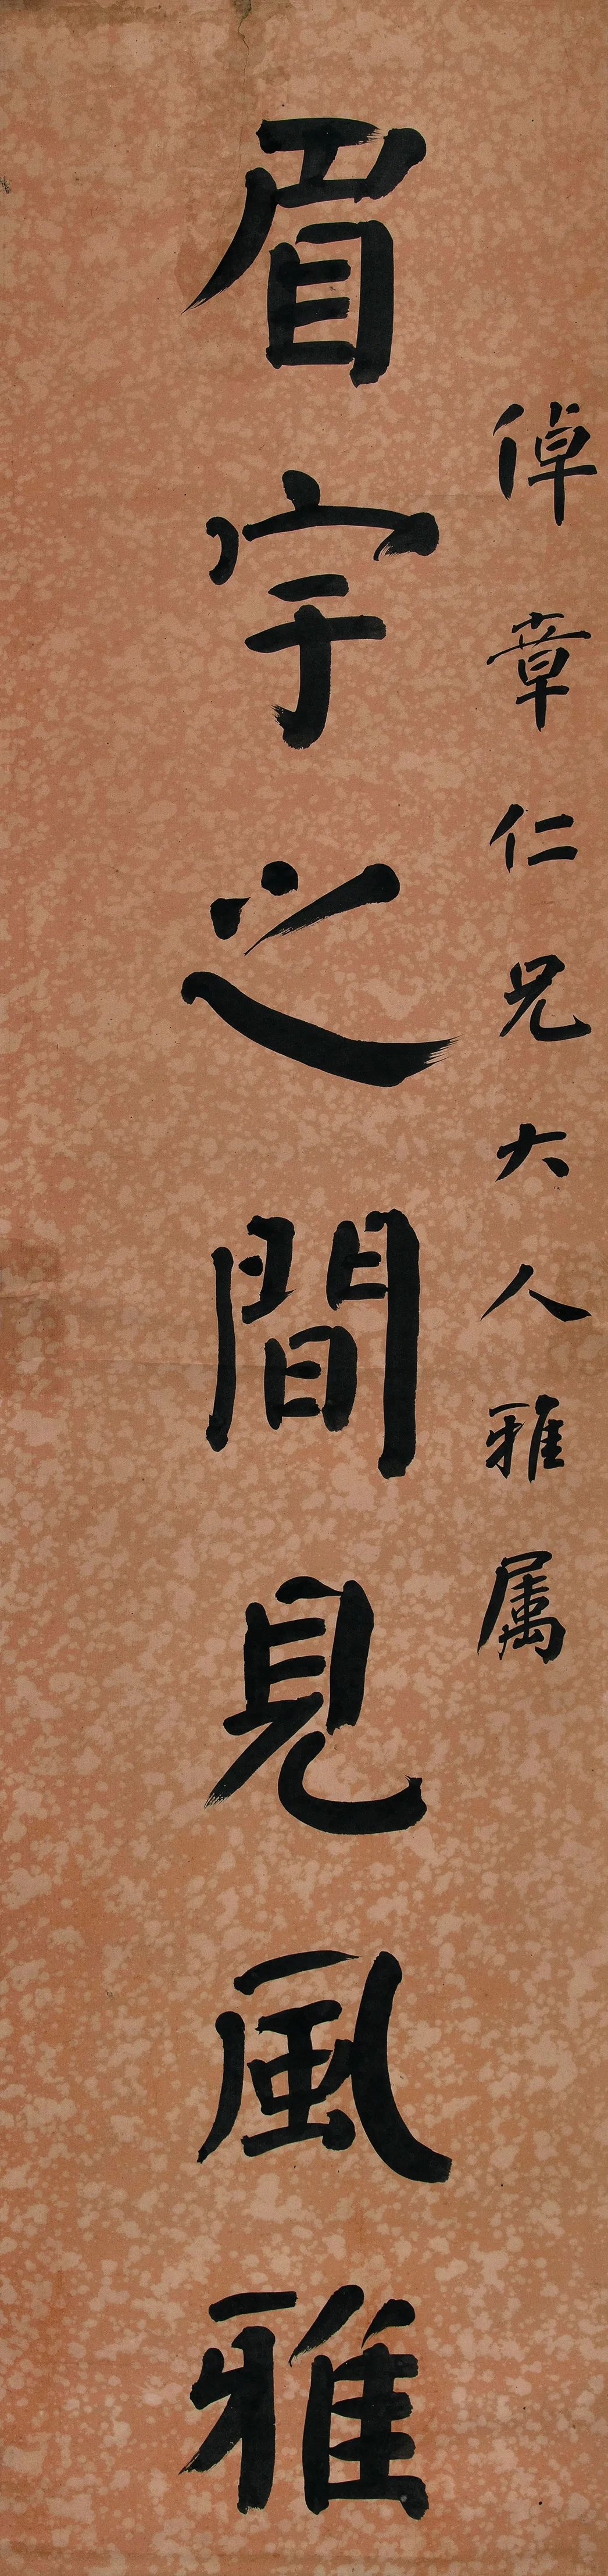 倬章仁兄大人雅属
眉宇之間見風雅